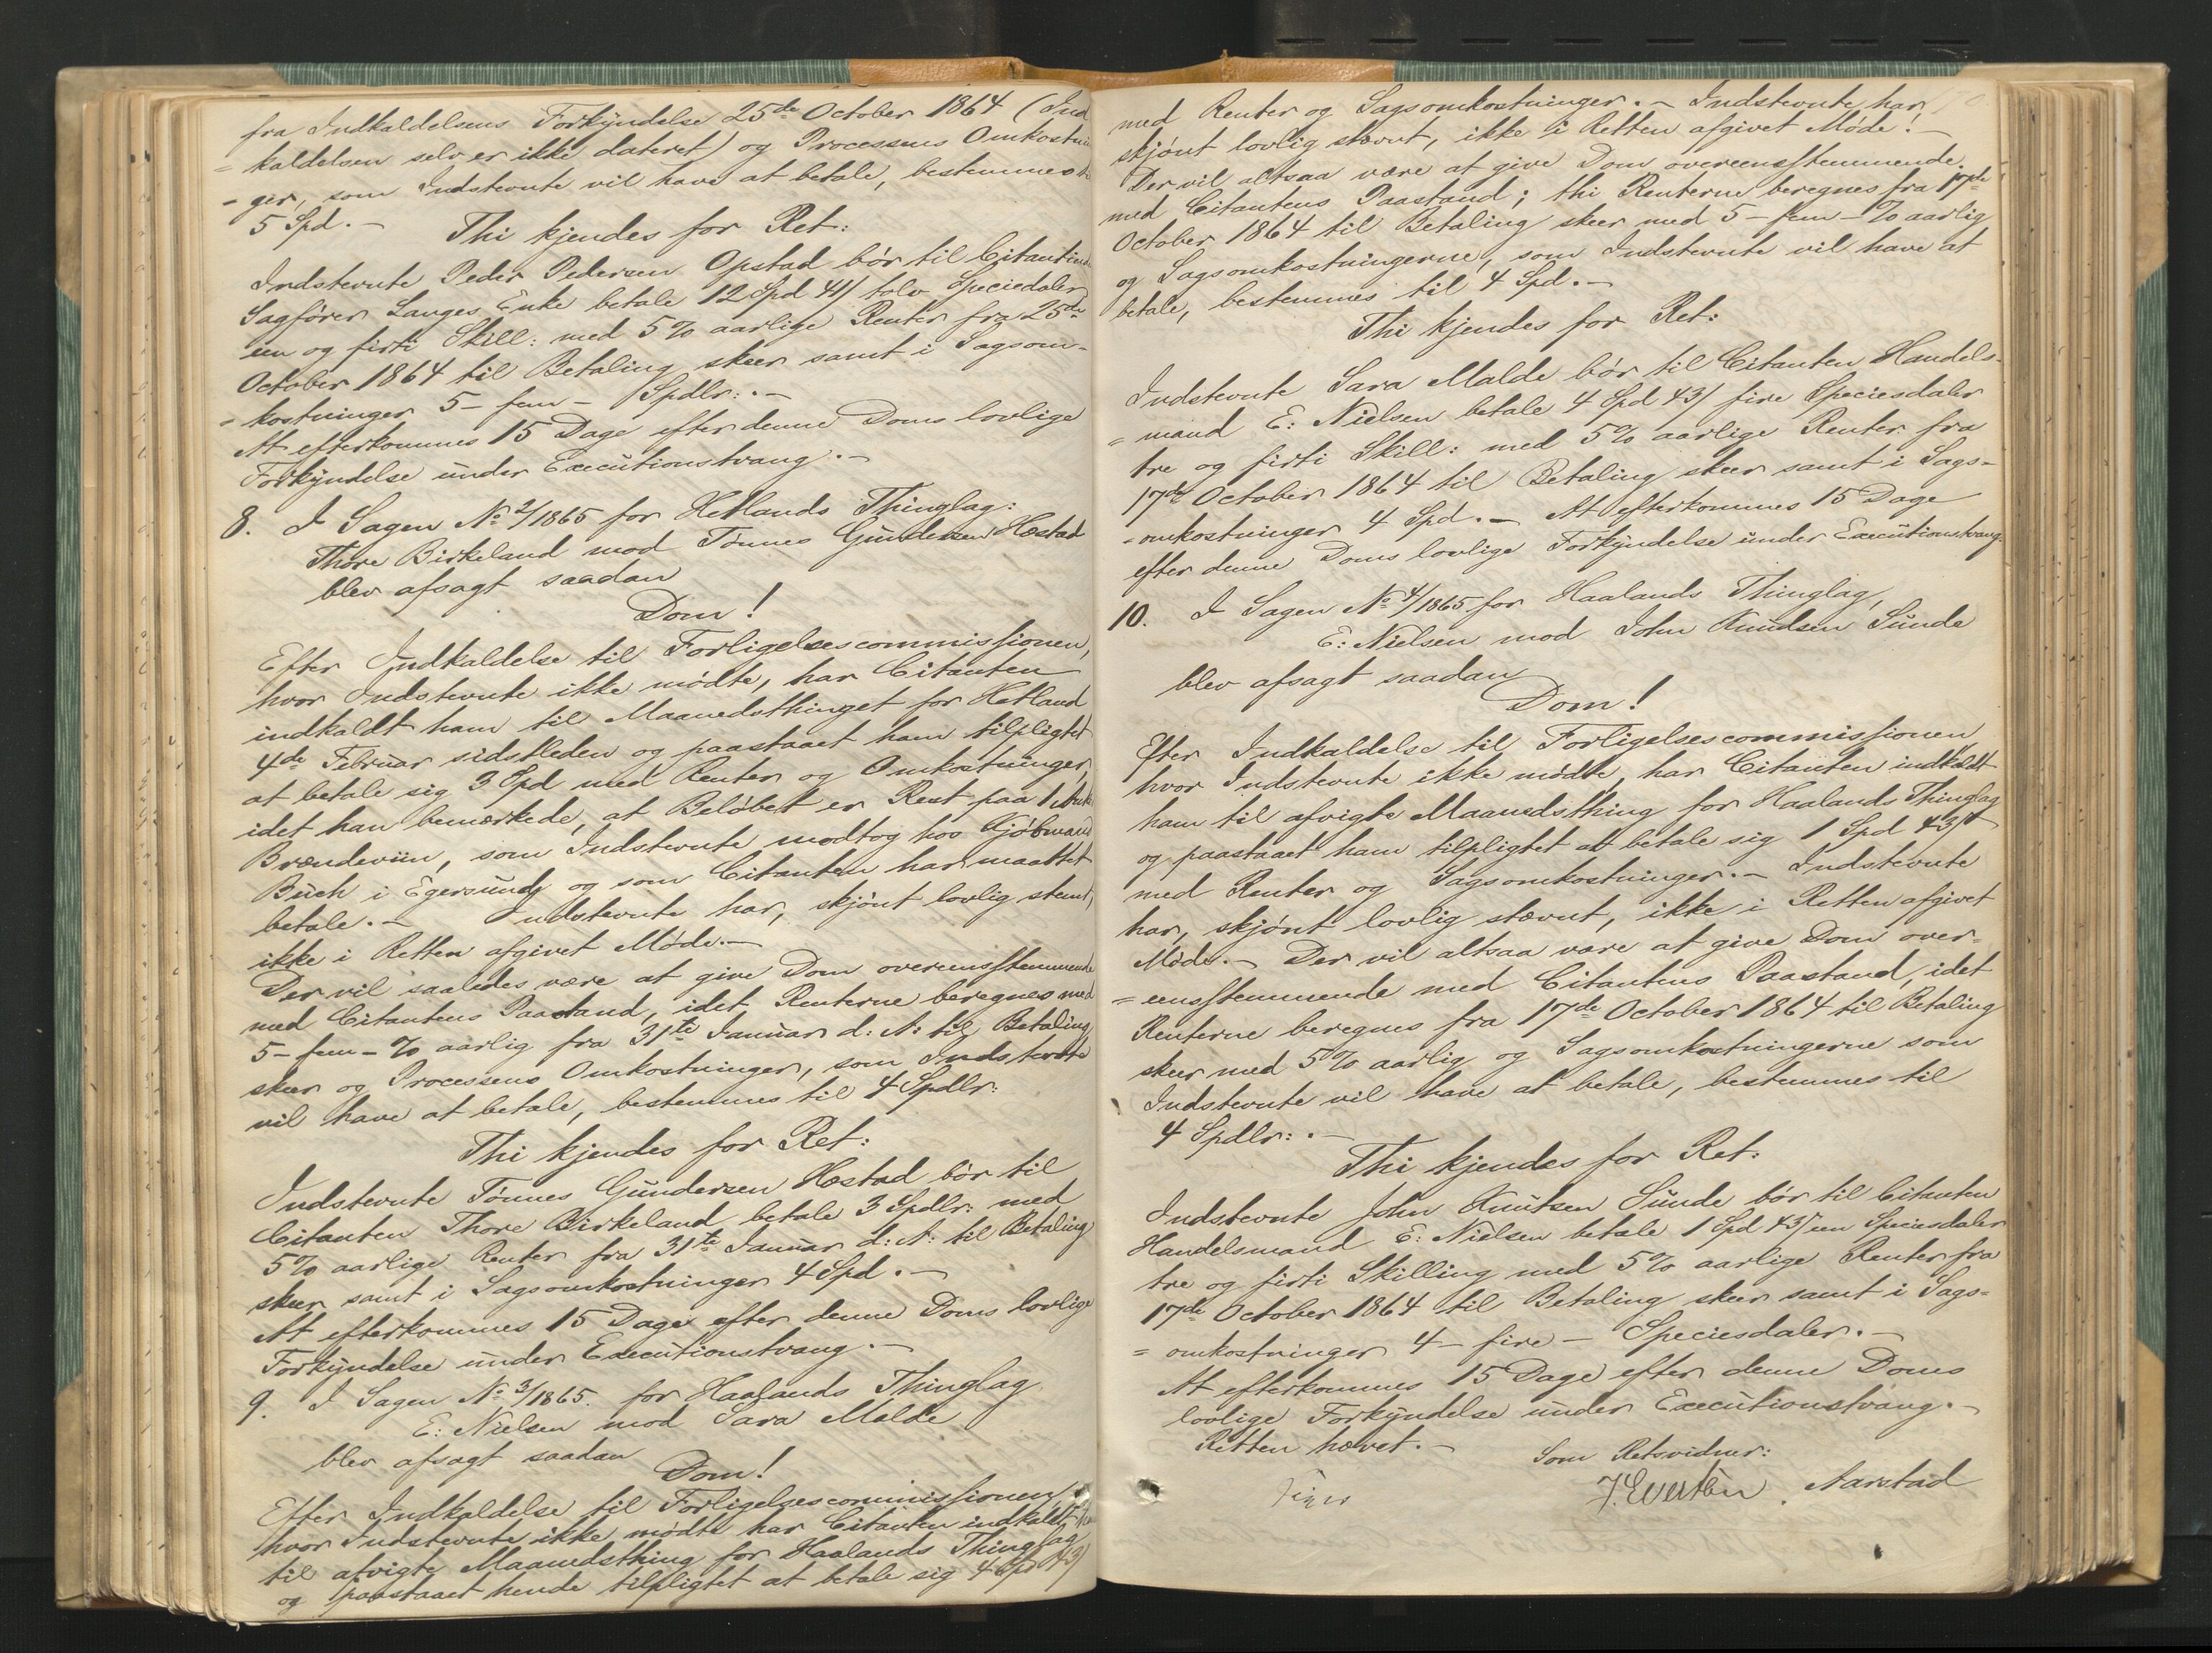 fra Indkaldelsens Forkyndelse 25de October 1864 (Ind
= kaldelsen selv er ikke dateret) og Processens Omkostnin
- ger, som Indstevnte vil have at betale, bestemmes til
5 Spd. -
Thi kjendes for Ret:
Indstevnte Peder Pedersen Opstad bör til Citantinden
Sagförer Langes Enke betale 12 Spd 41/ tolv Speciedaler
een og firti Skill: med 5% aarlige Renter fra 25de
October 1864 til Betaling skeer samt i Sagsom-
- kostninger 5 - fem - Spdlr: . -
At efterkommes 15 Dage efter denne Doms lovlige
Forkyndelse under Executionstvang. -
8. I Sagen No 2/1865 for Hetlands Thinglag:
Thore Birkeland mod Tönnes Gundersen Hæstad
blev afsagt saadan
Dom!
Efter Indkaldelse til Forligelsescommissionen,
hvor Indstevnte ikke mödte, har Citanten
indkaldt ham til Maanedsthinget for Hetland
4de Februar sidstleden og paastaaet ham tilpligtet
at betale sig 3 Spd med Renter og Omkostninger,
idet han bemærkede, at Belöbet er Rest paa 1 Anker
Brændeviin, som Indstevnte modtog hos Kjöbmand
Buch i Egersund og som Citanten har maattet
betale. - Indstevnte har, skjönt lovlig stevnt,
ikke i Retten afgivet Möde. -
Der vil saaledes være at give Dom overeensstemmende
med Citantens Paastand, idet Renterne beregnes med
5 - fem - % aarlig fra 31te Januar d: A: til Betaling
skeer og Processens Omkostninger, som Indstevnte
vil have at betale, bestemmes til 4 Spdlr:
Thi kjendes for Ret:
Indstevnte Tönnes Gundersen Hæstad bör til
Citanten Thore Birkeland betale 3 Spdlr: med
5% aarlige Renter fra 31te Januar d: A: til Betaling
skeer samt i Sagsomkostninger 4 Spd. -
At efterkommes 15 Dage efter denne Doms lovlige
Forkyndelse under Executionstvang. -
9. I Sagen No 3/1865. for Haalands Thinglag
E: Nielsen mod Sara Malde
blev afsagt saadan
Dom!
Efter Indkaldelse til Forligelsescommissionen,
hvor Indstevnte ikke mödte har Citanten indkaldt
til afvigte Maanedsthing for Haalands Thinglag
og paastaaet hende tilpligtet at betale sig 4 Spd 43/
med Renter og Sagsomkostninger. - Indstevnte har,
skjönt lovlig stævnt, ikke i Retten afgivet Möde! -
Der vil altsaa være at give Dom overeensstemmende
med Citantens Paastand; thi Renterne beregnes fra 17de
October 1864 til Betaling skeer med 5 - fem - % aarlig
og Sagsomkostningerne, som Indstevnte vil have at
betale, bestemmes til 4 Spd. -
Thi kjendes for Ret:
Indstevnte Sara Malde bör til Citanten Handels-
= mand E: Nielsen betale 4 Spd 43/ fire Speciesdaler
tre og firti Skill: med 5% aarlige Renter fra
17de October 1864 til Betaling skeer samt i Sags-
- omkostninger 4 Spd. - At efterkommes 15 Dage
efter denne Doms lovlige Forkyndelse under Executionstvang.
10. I Sagen No 4/1865 for Haalands Thinglag,
E: Nielsen mod John Knudsen Sunde
blev afsagt saadan
Dom!
Efter Indkaldelse til Forligelsescommissionen
hvor Indstevnte ikke mödte, har Citanten indkaldt
ham til afvigte Maanedsthing for Haalands Thinglag
og paastaaet ham tilpligtet at betale sig 1 Spd 43/
med Renter og Sagsomkostninger. - Indstevnte
har, skjönt lovlig stævnt, ikke i Retten afgivet
Möde. - Der vil altsaa være at give Dom over-
= eensstemmende med Citantens Paastand, idet
Renterne beregnes fra 17de October 1864 til Betaling
skeer med 5% aarlig og Sagsomkostningerne som
Indstevnte vil have at betale, bestemmes til
4 Spdlr: . -
Thi kjendes for Ret:
Indstevnte John Knutsen Sunde bör til Citanten
Handelsmand E: Nielsen betale 1 Spd 43/ een Speciesdaler
tre og firti Skilling med 5% aarlige Renter fra
17de October 1864 til Betaling skeer samt i Sags-
= omkostninger 4 - fire - Speciesdaler. -
At efterkommes 15 Dage efter denne Doms
lovlige Forkyndelse under Executionstvang. -
Retten hævet. -
Som Retsvidner:
J. Evertsen Aarstad